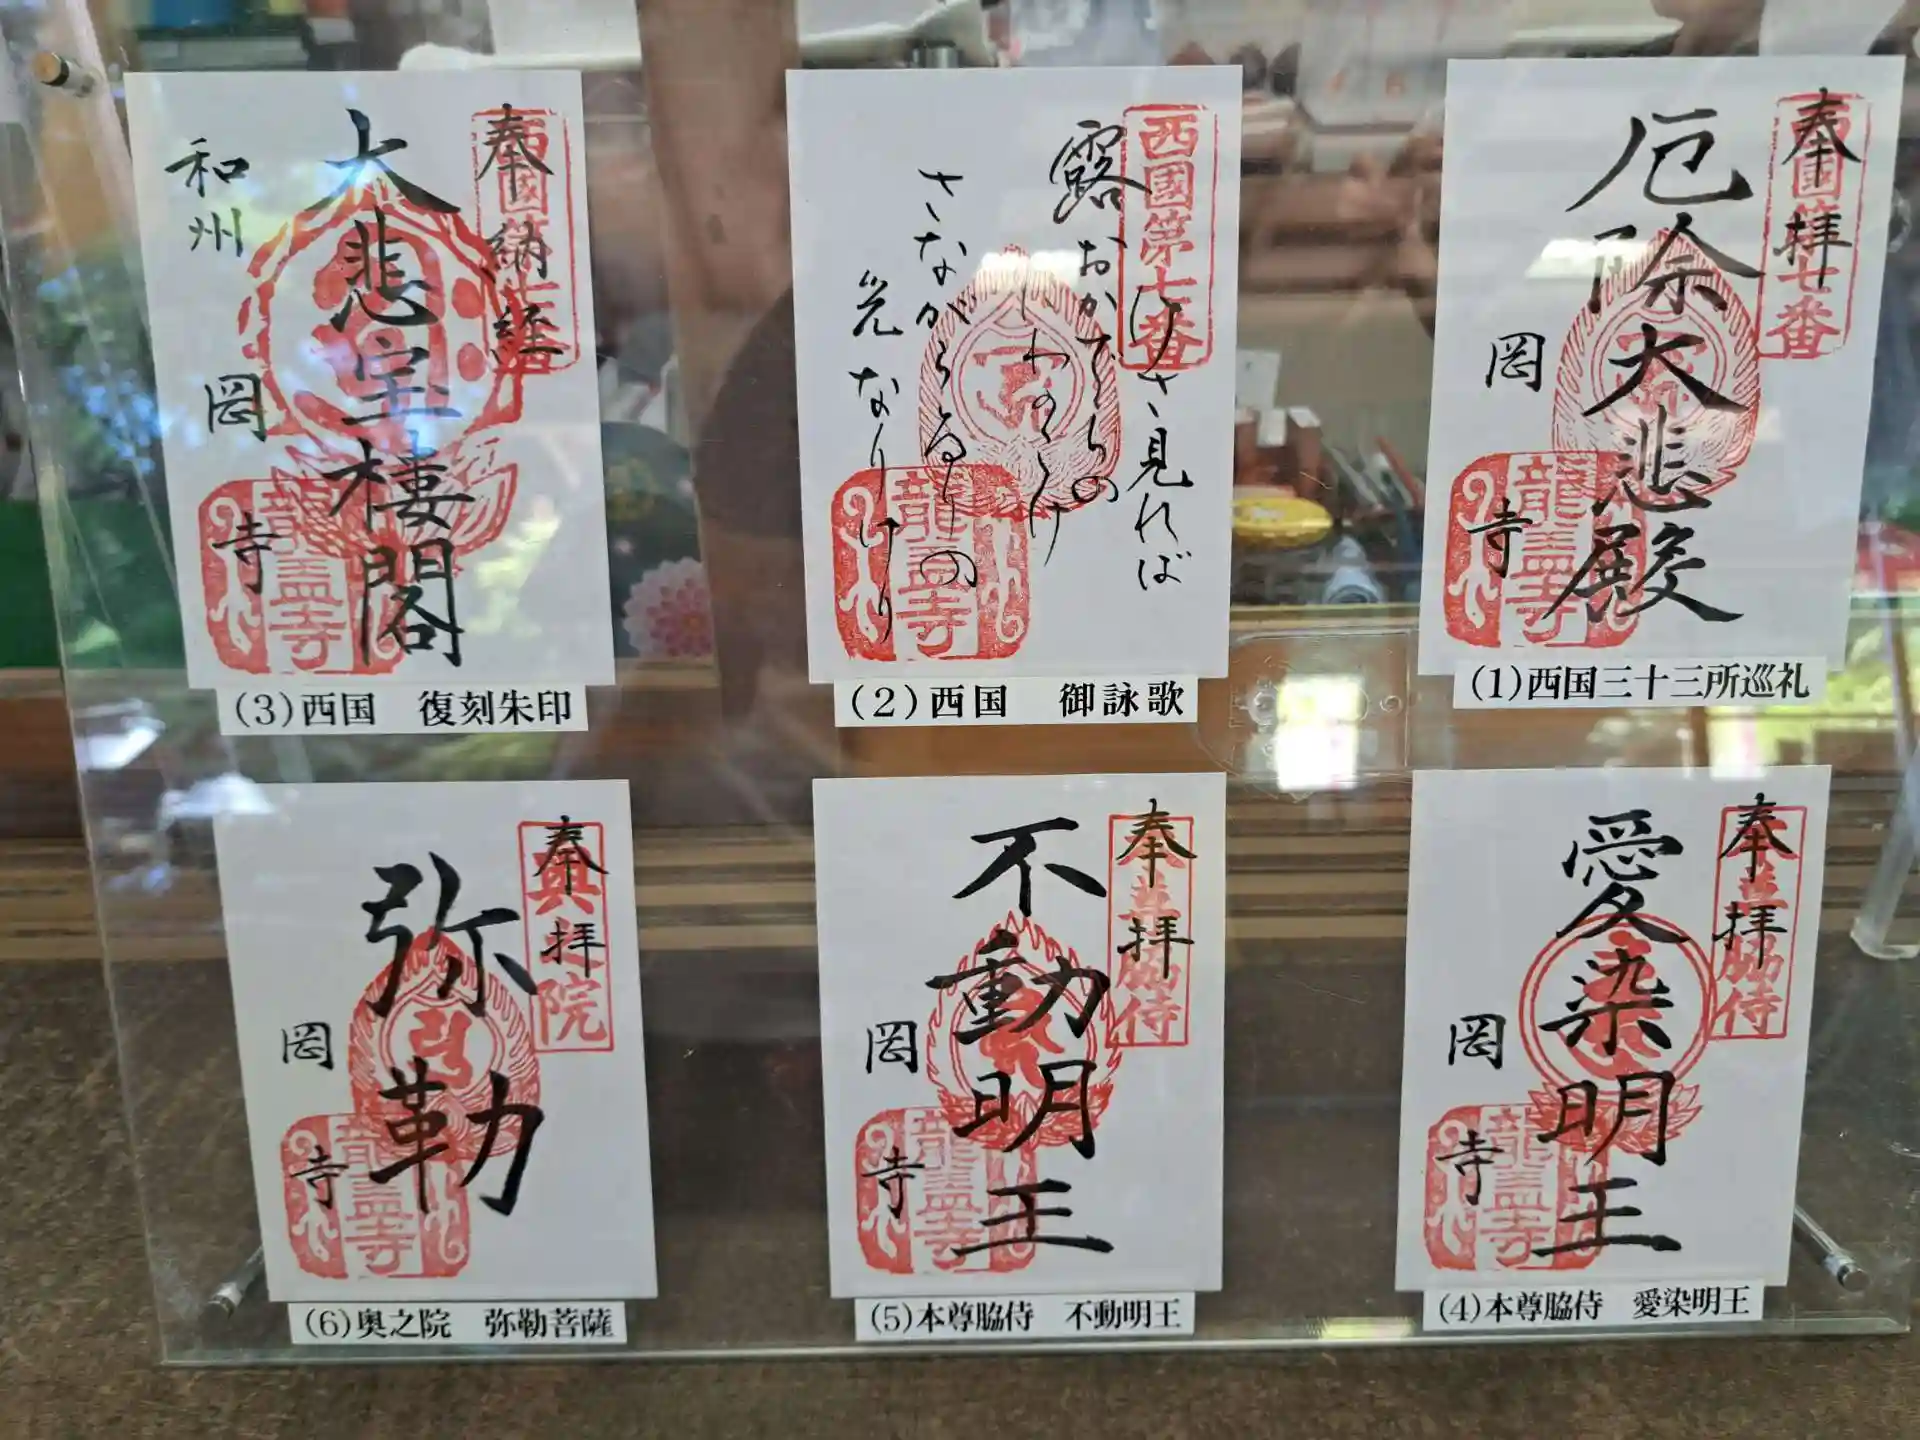 奉拝
西國第七番
厄除大悲殿
岡寺
龍蓋寺
(1)西国三十三所巡礼
西國第七番
けさ見れば
露おかでらの
にわのこけ
さながらるりの
光なりけり
龍蓋寺
(2)西国 御詠歌
奉納経
西國第七番
大悲宝楼閣
和州
岡寺
龍蓋寺
(3)西国 復刻朱印
奉拝
本尊脇侍
愛染明王
岡寺
龍蓋寺
(4)本尊脇侍 愛染明王
奉拝
本尊脇侍
不動明王
岡寺
龍蓋寺
(5)本尊脇侍 不動明王
奉拝
奥之院
弥勒
岡寺
龍蓋寺
(6)奥之院 弥勒菩薩